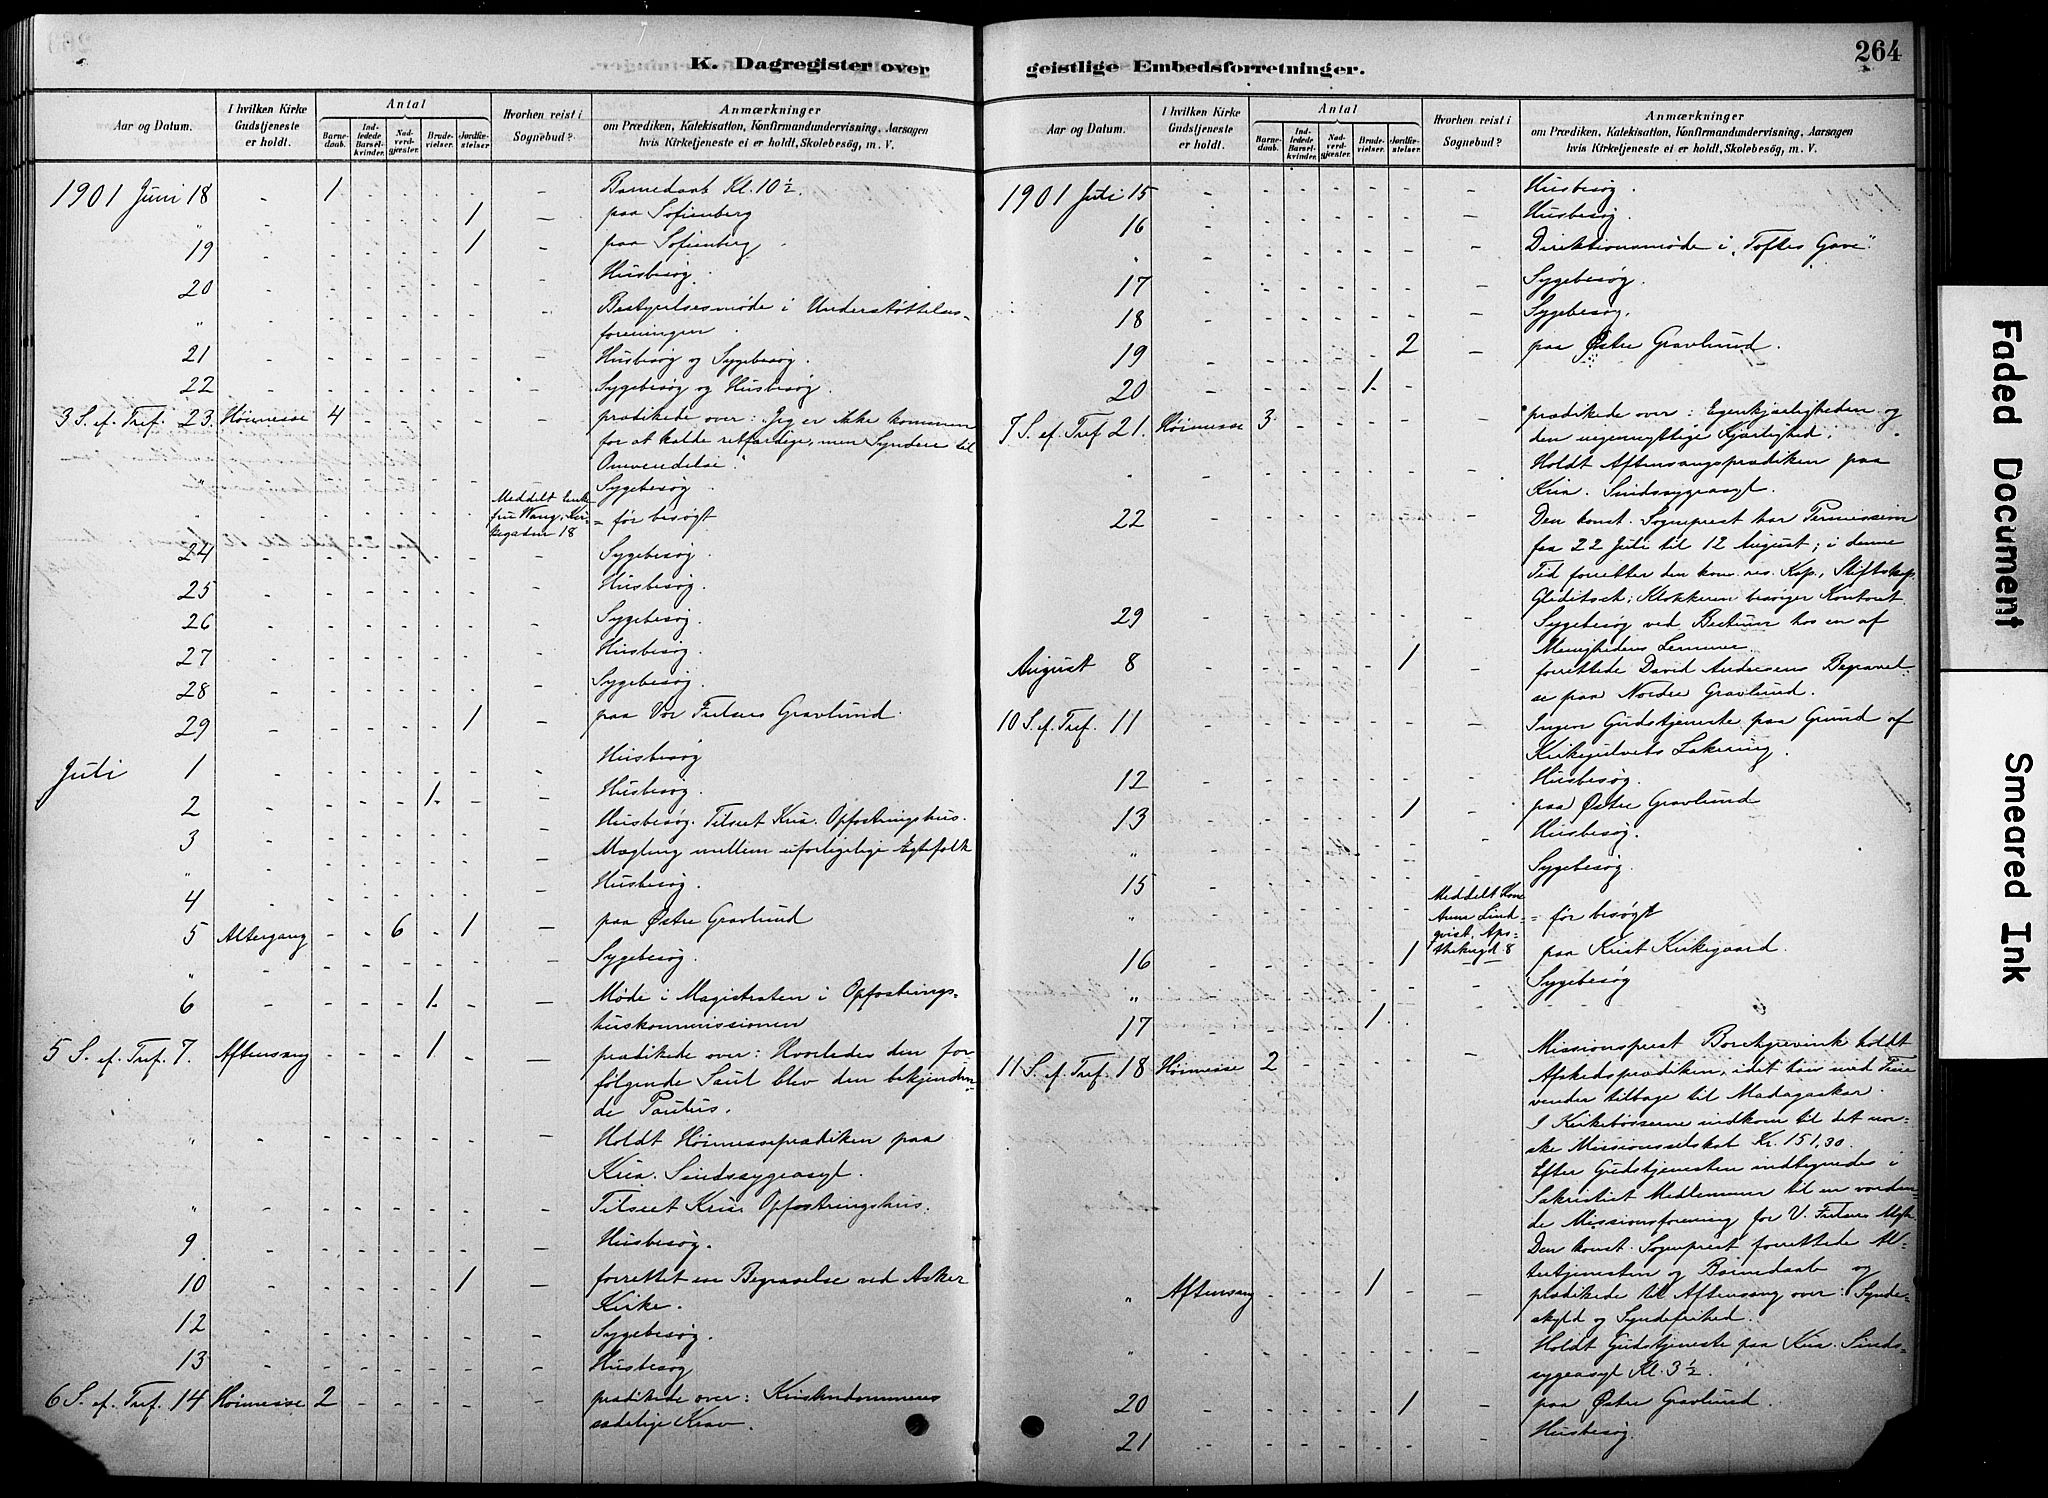 264
K. Dagregister over
Aar og Datum.
I hvilken Kirke Gudstjeneste er holdt.
Antal
Barnedaab.
Indledede Barselkvinder.
Nadverdgjester.
Brudevielser.
Jordfæstelser
Hvorhen reist i Sognebud?
Anmærkninger
om Prædiken, Katekisation, Konfirmandundervisning, Aarsagen
hvis Kirketjeneste ei er holdt, Skolebesøg, m. V.
1901 Juni 18 - 1 - - - - - Barnedaab Kl. 10½.
" - - - - - 1 - paa Sofienberg
19 - - - - - 1 - paa Sofienberg.
20 Husbesøg.
" Bestyrelsesmøde i Understøttelses-
foreningen.
21 Husbesøg og Sygebesøg.
22 Sygebesøg og Husbesøg.
3 S. ef. Tref. 23. Høimesse 4 - - - - - prædikede over: "Jeg er ikke kommen
for at kalde retfærdige, men Syndere til
Omvendelse."
" Sygebesøg.
" Meddelt Enke-
fru Wang, Kir-
kegaden 18 = før besøgt
24 Sygebesøg.
25 Husbesøg.
26 Sygebesøg.
27 Husbesøg.
28 Sygebesøg.
29 - - - - - 1 - paa Vor Frelsers Gravlund.
Juli 1 Husbesøg
2 - - - - 1 - - Husbesøg.
3 Husbesøg. Tilseet Kria. Opfostringshus.
" Mægling mellem uforligelige Egtefolk
4 Husbesøg.
5 Altergang - - 6 - 1 - paa Østre Gravlund
" Sygebesøg.
6 - - - - 1 - - Møde i Magistraten i Opfostrings-
huskommissionen
5 S. ef. Tref. 7. Aftensang - - - 1. - - prædikede over: Hvorledes den for-
følgende Saul blev den bekjenden-
de Paulus.
" Holdt Høimesseprædiken paa
Kria. Sindssygeasyl.
" Tilseet Kria. Opfostringshus.
9 Husbesøg.
10 - - - - - 1 - forrettet en Begravelse ved Asker
Kirke.
12 Sygebesøg.
13 Husbesøg
6 S. ef. Tref. 14 Høimesse 2 - - - - - prædikede over: Kristendommens
sædelige Krav.
geistlige Embedsforretninger.
Aar og Datum.
I hvilken Kirke Gudstjeneste er holdt.
Antal
Barnedaab.
Indledede Barselkvinder.
Nadverdgjester.
Brudevielser.
Jordfæstelser.
Hvorhen reist i Sognebud?
Anmærkninger
om Prædiken, Katekisation, Konfirmandundervisning, Aarsagen
hvis Kirketjeneste ei er holdt, Skolebesøg, m. V.
1901 Juli 15 Husbesøg.
16 Husbesøg.
" Direktionsmøde i "Toftes Gave".
17 Sygebesøg.
18 Sygebesøg.
19 - - - - - 2 - paa Østre Gravlund.
20 - - - - 1. -
7 S. ef. Tref 21. Høimesse 3 - - - - - prædikede over: Egenkjærligheden og
den uegennyttige Kjærlighed.
" Holdt Aftensangsprædiken paa
Kria. Sindssygeasyl.
22 Den konst. Sogneprest har Permission
fra 22 Juli til 12 August; i denne
Tid forretter den kons. res. Kap., Stiftskap.
Gleditsch; Klokkeren besørger Kontoret.
29 Sygebesøg ved Bestum hos en af
Menighedens Lemmer.
August 8 - - - - - 1 - forrettede David Andersens Begravel-
se paa Nordre Gravlund.
10 S. ef. Tref. 11 Ingen Gudstjeneste paa Grund af
Kirkegulvets Lakering.
12 Husbesøg.
13 - - - - - 1 - paa Østre Gravlund
" Husbesøg.
15 Sygebesøg.
" Meddelt
Anna Lind-
qvist, Apo-
thekergd 8 = før besøgt
16 - - - - - 1 - paa Krist Kirkegaard.
" Sygebesøg
17 - - - - 1 - - -
11 S. ef. Tref. 18 Høimesse 2 - - - - - Missionsprest Borchgrevink holdt
Afskedsprædiken, idet han med Frue
vender tilbage til Madagaskar.
I Kirkebøsserne indkom til det nor-
ske Missionsselskab Kr. 151,30.
Efter Gudstjenesten indtegnedes i
Sakristiet Medlemmer til en vorden-
de Missionsforening for V. Frelsers Mgh.
Den konst. Sogneprest forrettede Al-
tertjenesten og Barnedaab og
" Aftensang - - - 1 - - prædikede til Aftensang over: Synde-
skyld og Syndefrihed.
" Holdt Gudstjeneste paa Kria. Sinds-
sygeasyl Kl. 3½.
20 - - - - - 1 - paa Østre Gravlund.
21 Husbesøg.
Faded Document
Smeared Ink